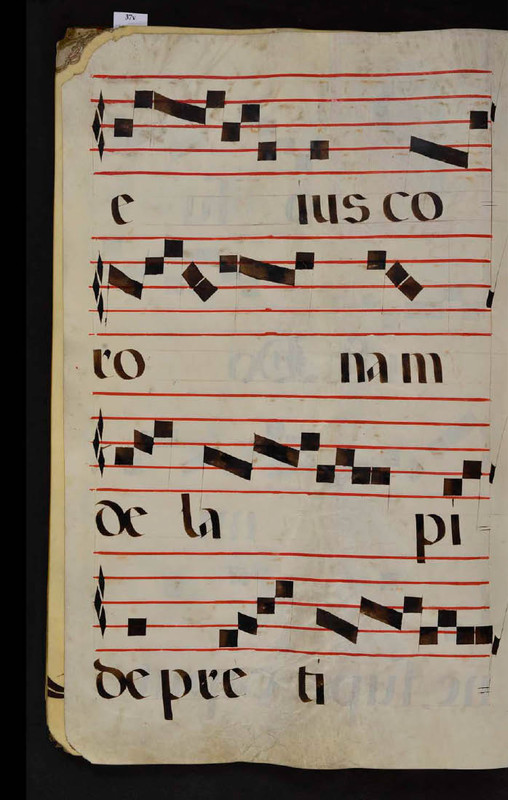 37v
e ius co
ro nam
de la pi
de pre ti